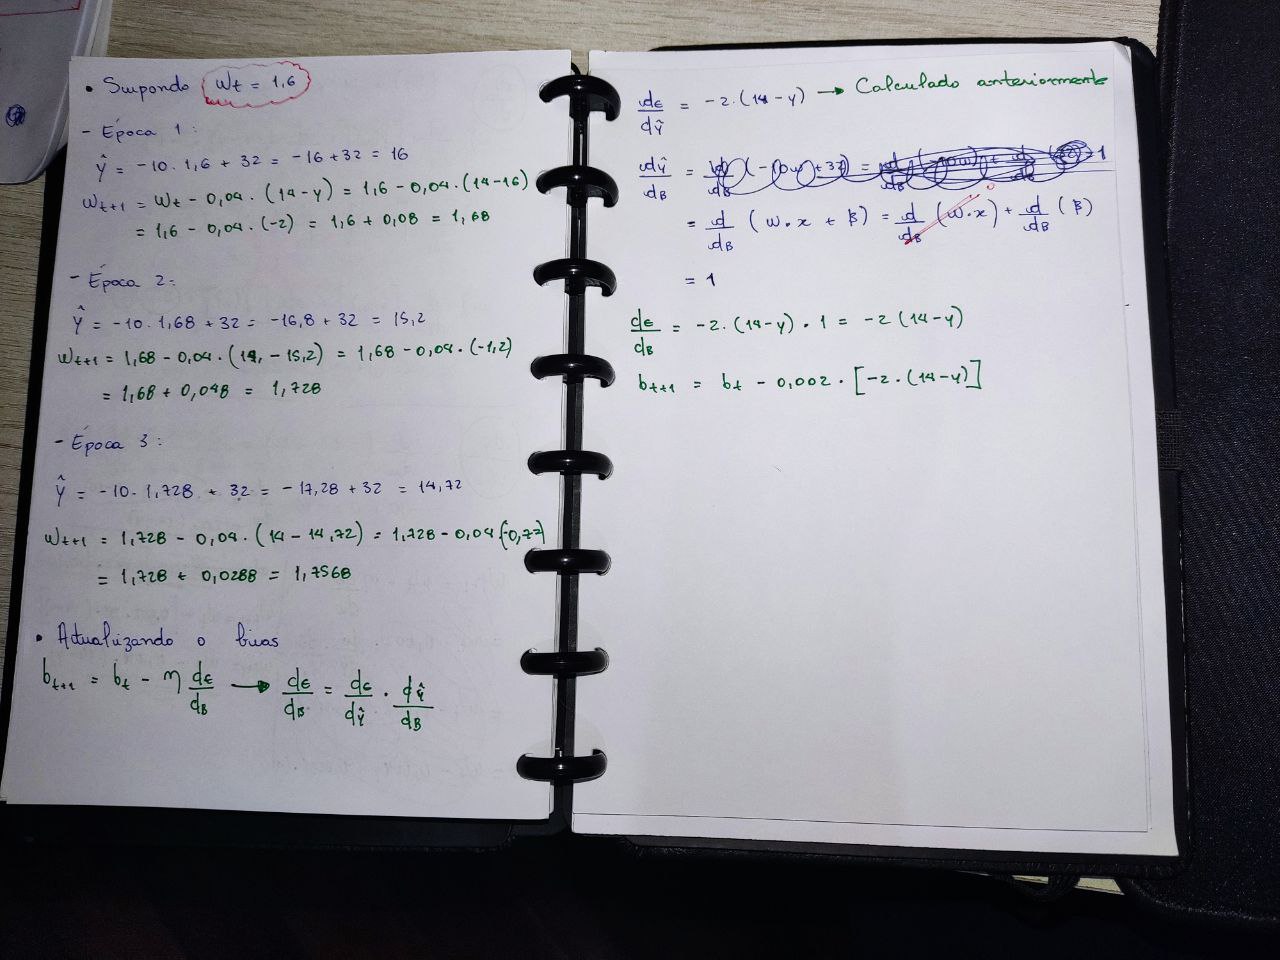 • Supondo Wt = 1,6
- Época 1:
Ŷ = -10 . 1,6 + 32 = -16 + 32 = 16
Wt+1 = Wt - 0,04 . (14 - y) = 1,6 - 0,04 . (14 - 16)
= 1,6 - 0,04 . (-2) = 1,6 + 0,08 = 1,68
- Época 2:
Ŷ = -10 . 1,68 + 32 = -16,8 + 32 = 15,2
Wt+1 = 1,68 - 0,04 . (14, - 15,2) = 1,68 - 0,04 . (-1,2)
= 1,68 + 0,048 = 1,728
- Época 3:
Ŷ = -10 . 1,728 + 32 = -17,28 + 32 = 14,72
Wt+1 = 1,728 - 0,04 . (14 - 14,72) = 1,728 - 0,04 (-0,72)
= 1,728 + 0,0288 = 1,7568
• Atualizando o bias
bt+1 = bt - η dε/dB → dε/dB = dε/dŶ . dŶ/dB
dε/dŶ = -2 . (14 - y) → Calculado anteriormente
dŶ/dB = d/dB (-10w + 32) =
= d/dB (w . x + B) = d/dB (w . x) + d/dB (B)
= 1
dε/dB = -2 . (14 - y) . 1 = -2 (14 - y)
bt+1 = bt - 0,002 . [-2 . (14 - y)]